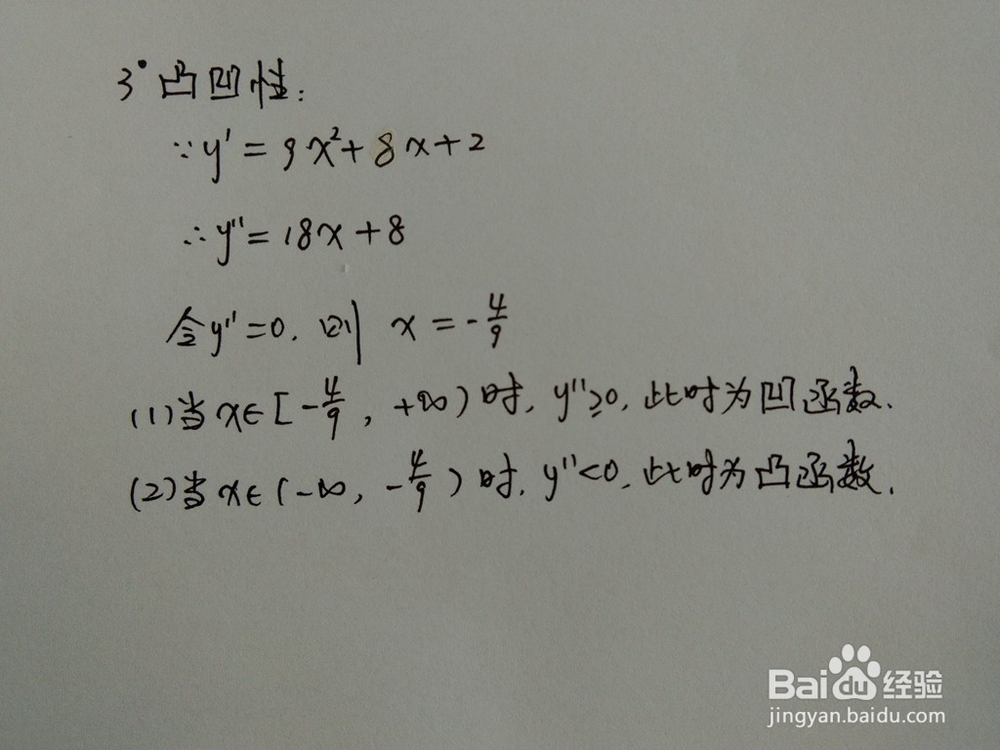 3° 凸凹性:
∵y' = 9x²+8x+2
∴y''=18x+8
令y''=0. 则 x=-4/9
(1)当x∈[-4/9, +∞)时, y''≥0, 此时为凹函数.
(2)当x∈(-∞, -4/9)时, y''<0, 此时为凸函数.
Baidu经验
jingyan.baidu.com